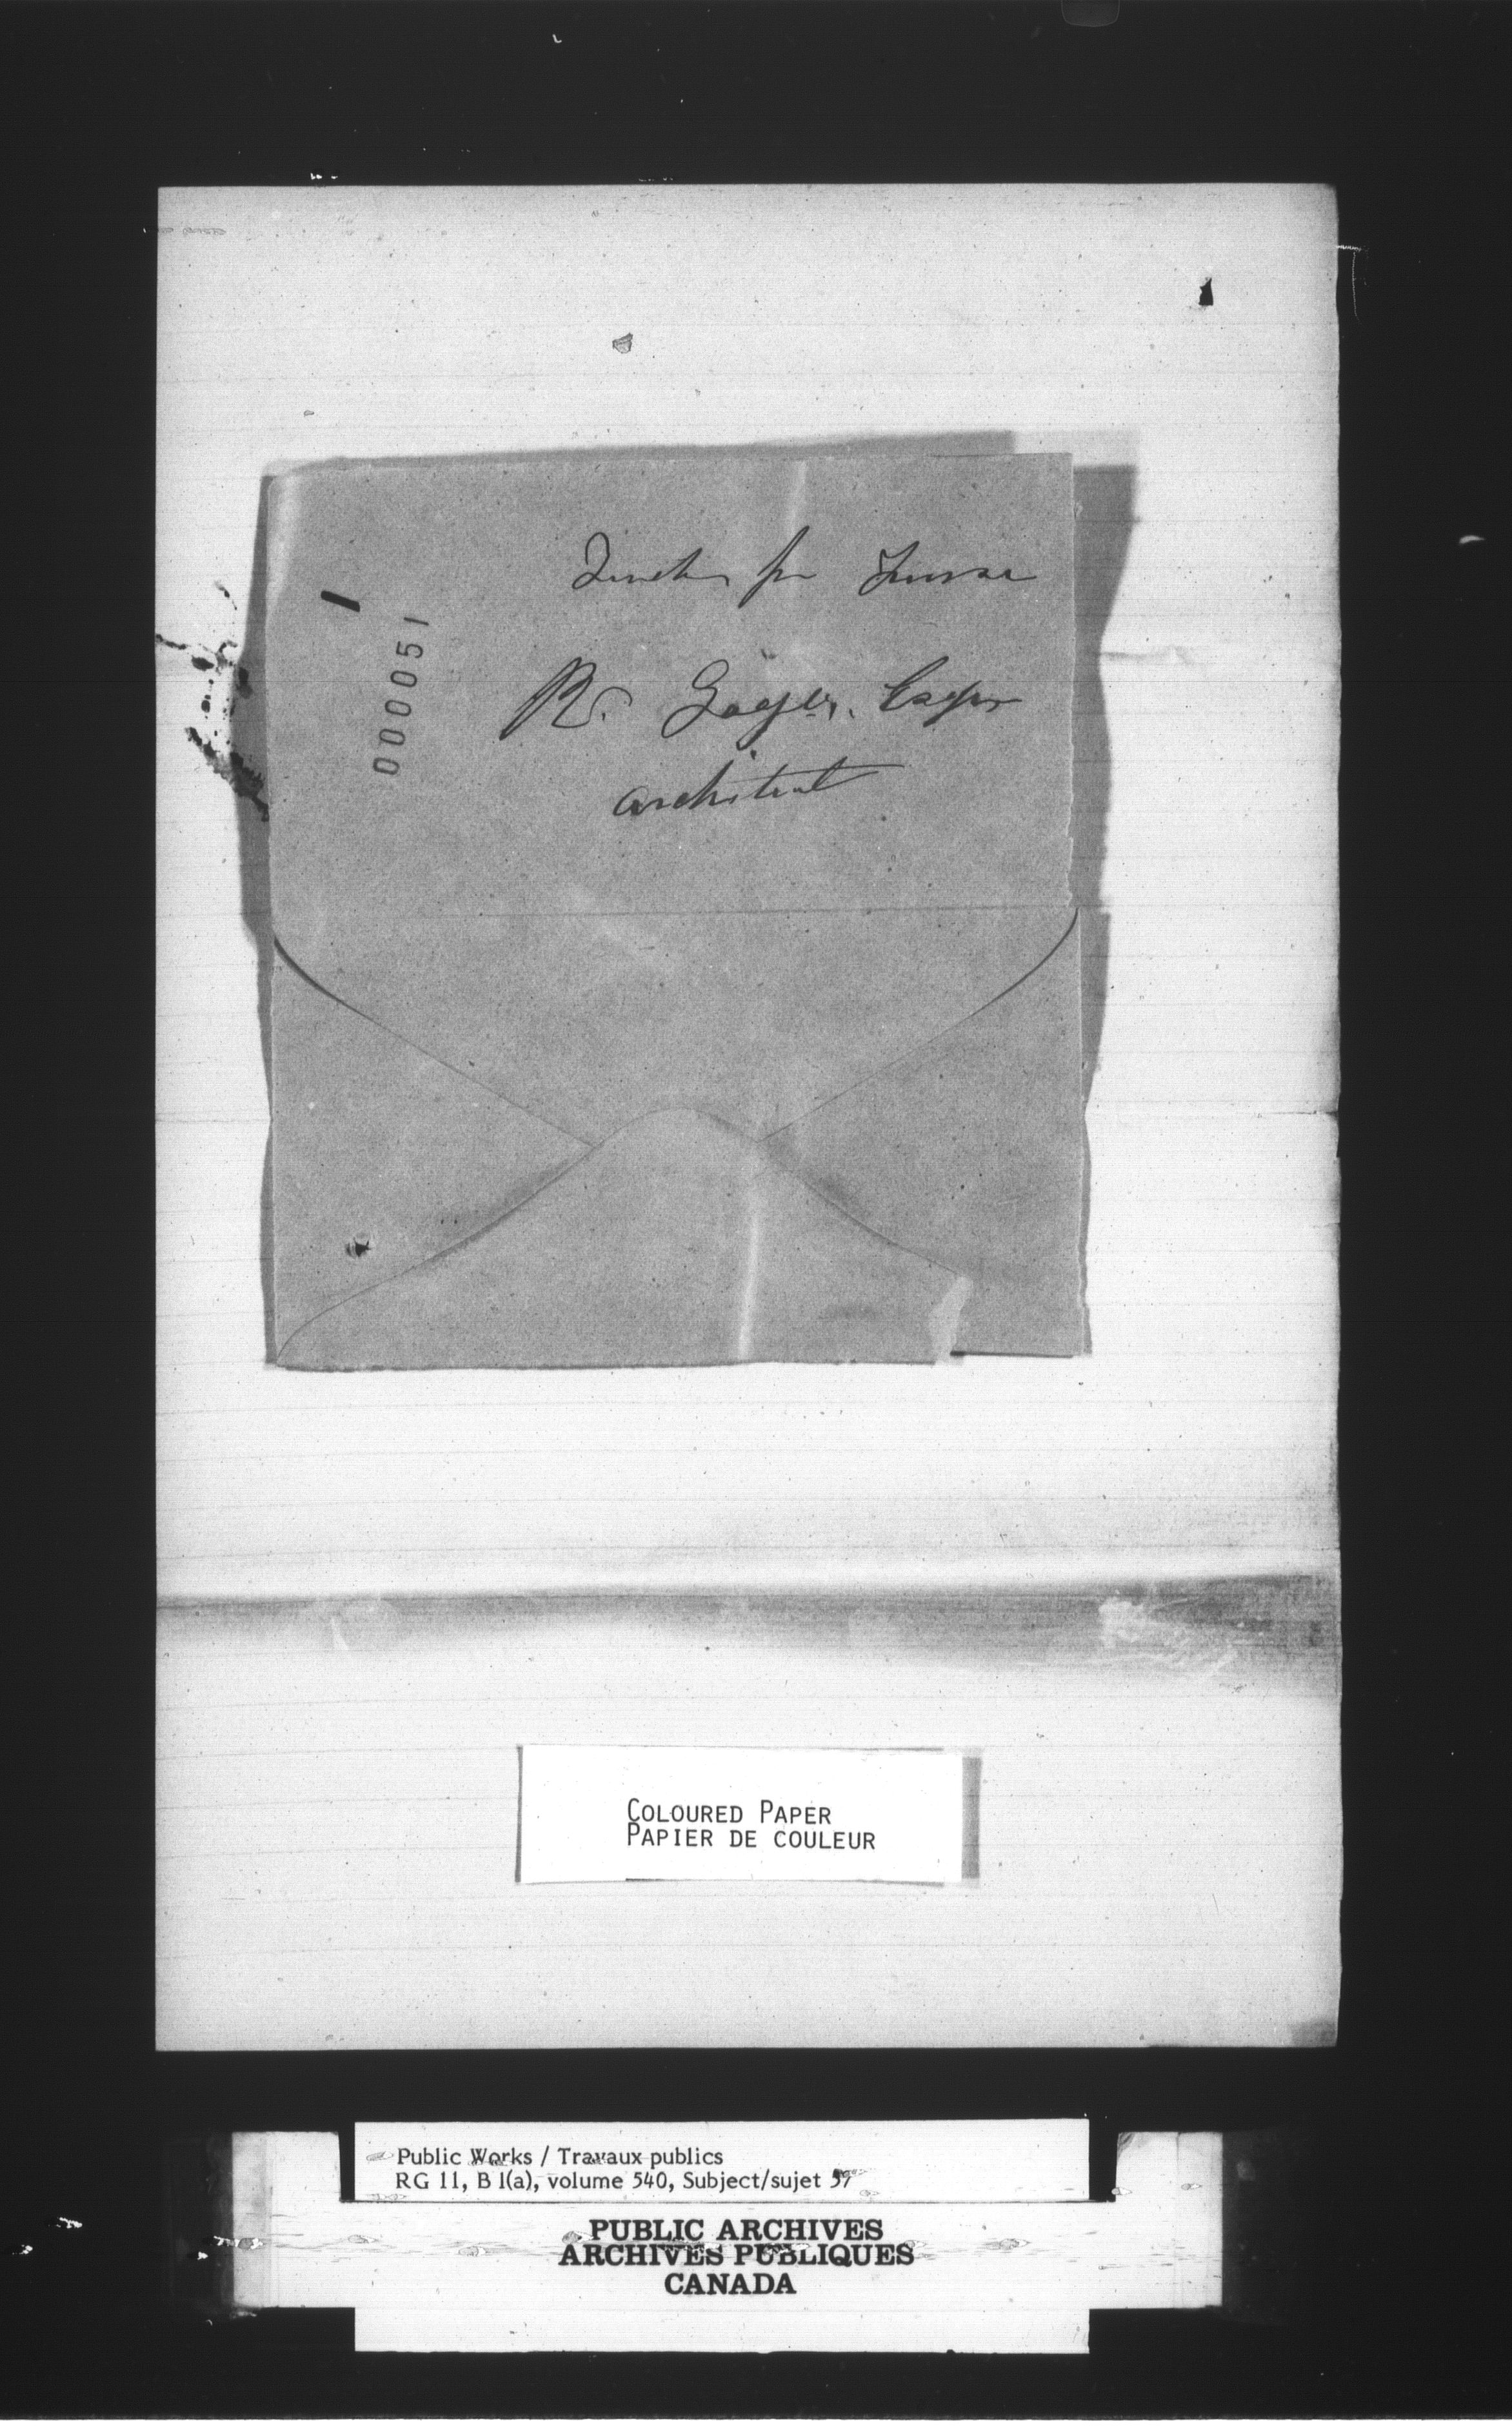 Tender for
000051
R. Gage Esqr
architect
COLOURED PAPER
PAPIER DE COULEUR
Public Works / Travaux publics
RG 11, B 1(a), volume 540, Subject/sujet 57
PUBLIC ARCHIVES
ARCHIVES PUBLIQUES
CANADA